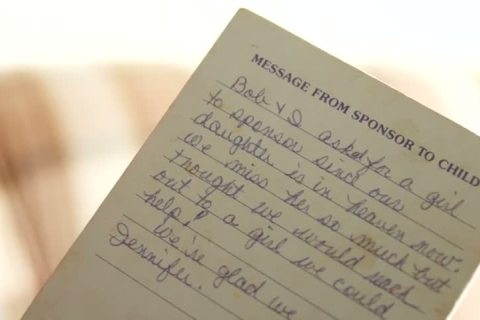 MESSAGE FROM SPONSOR TO CHILD
Bob & I asked for a girl
to sponsor since our
daughter is in heaven now.
We miss her so much but
thought we would reach
out to a girl we could
help!
We're glad we
Jennifer.